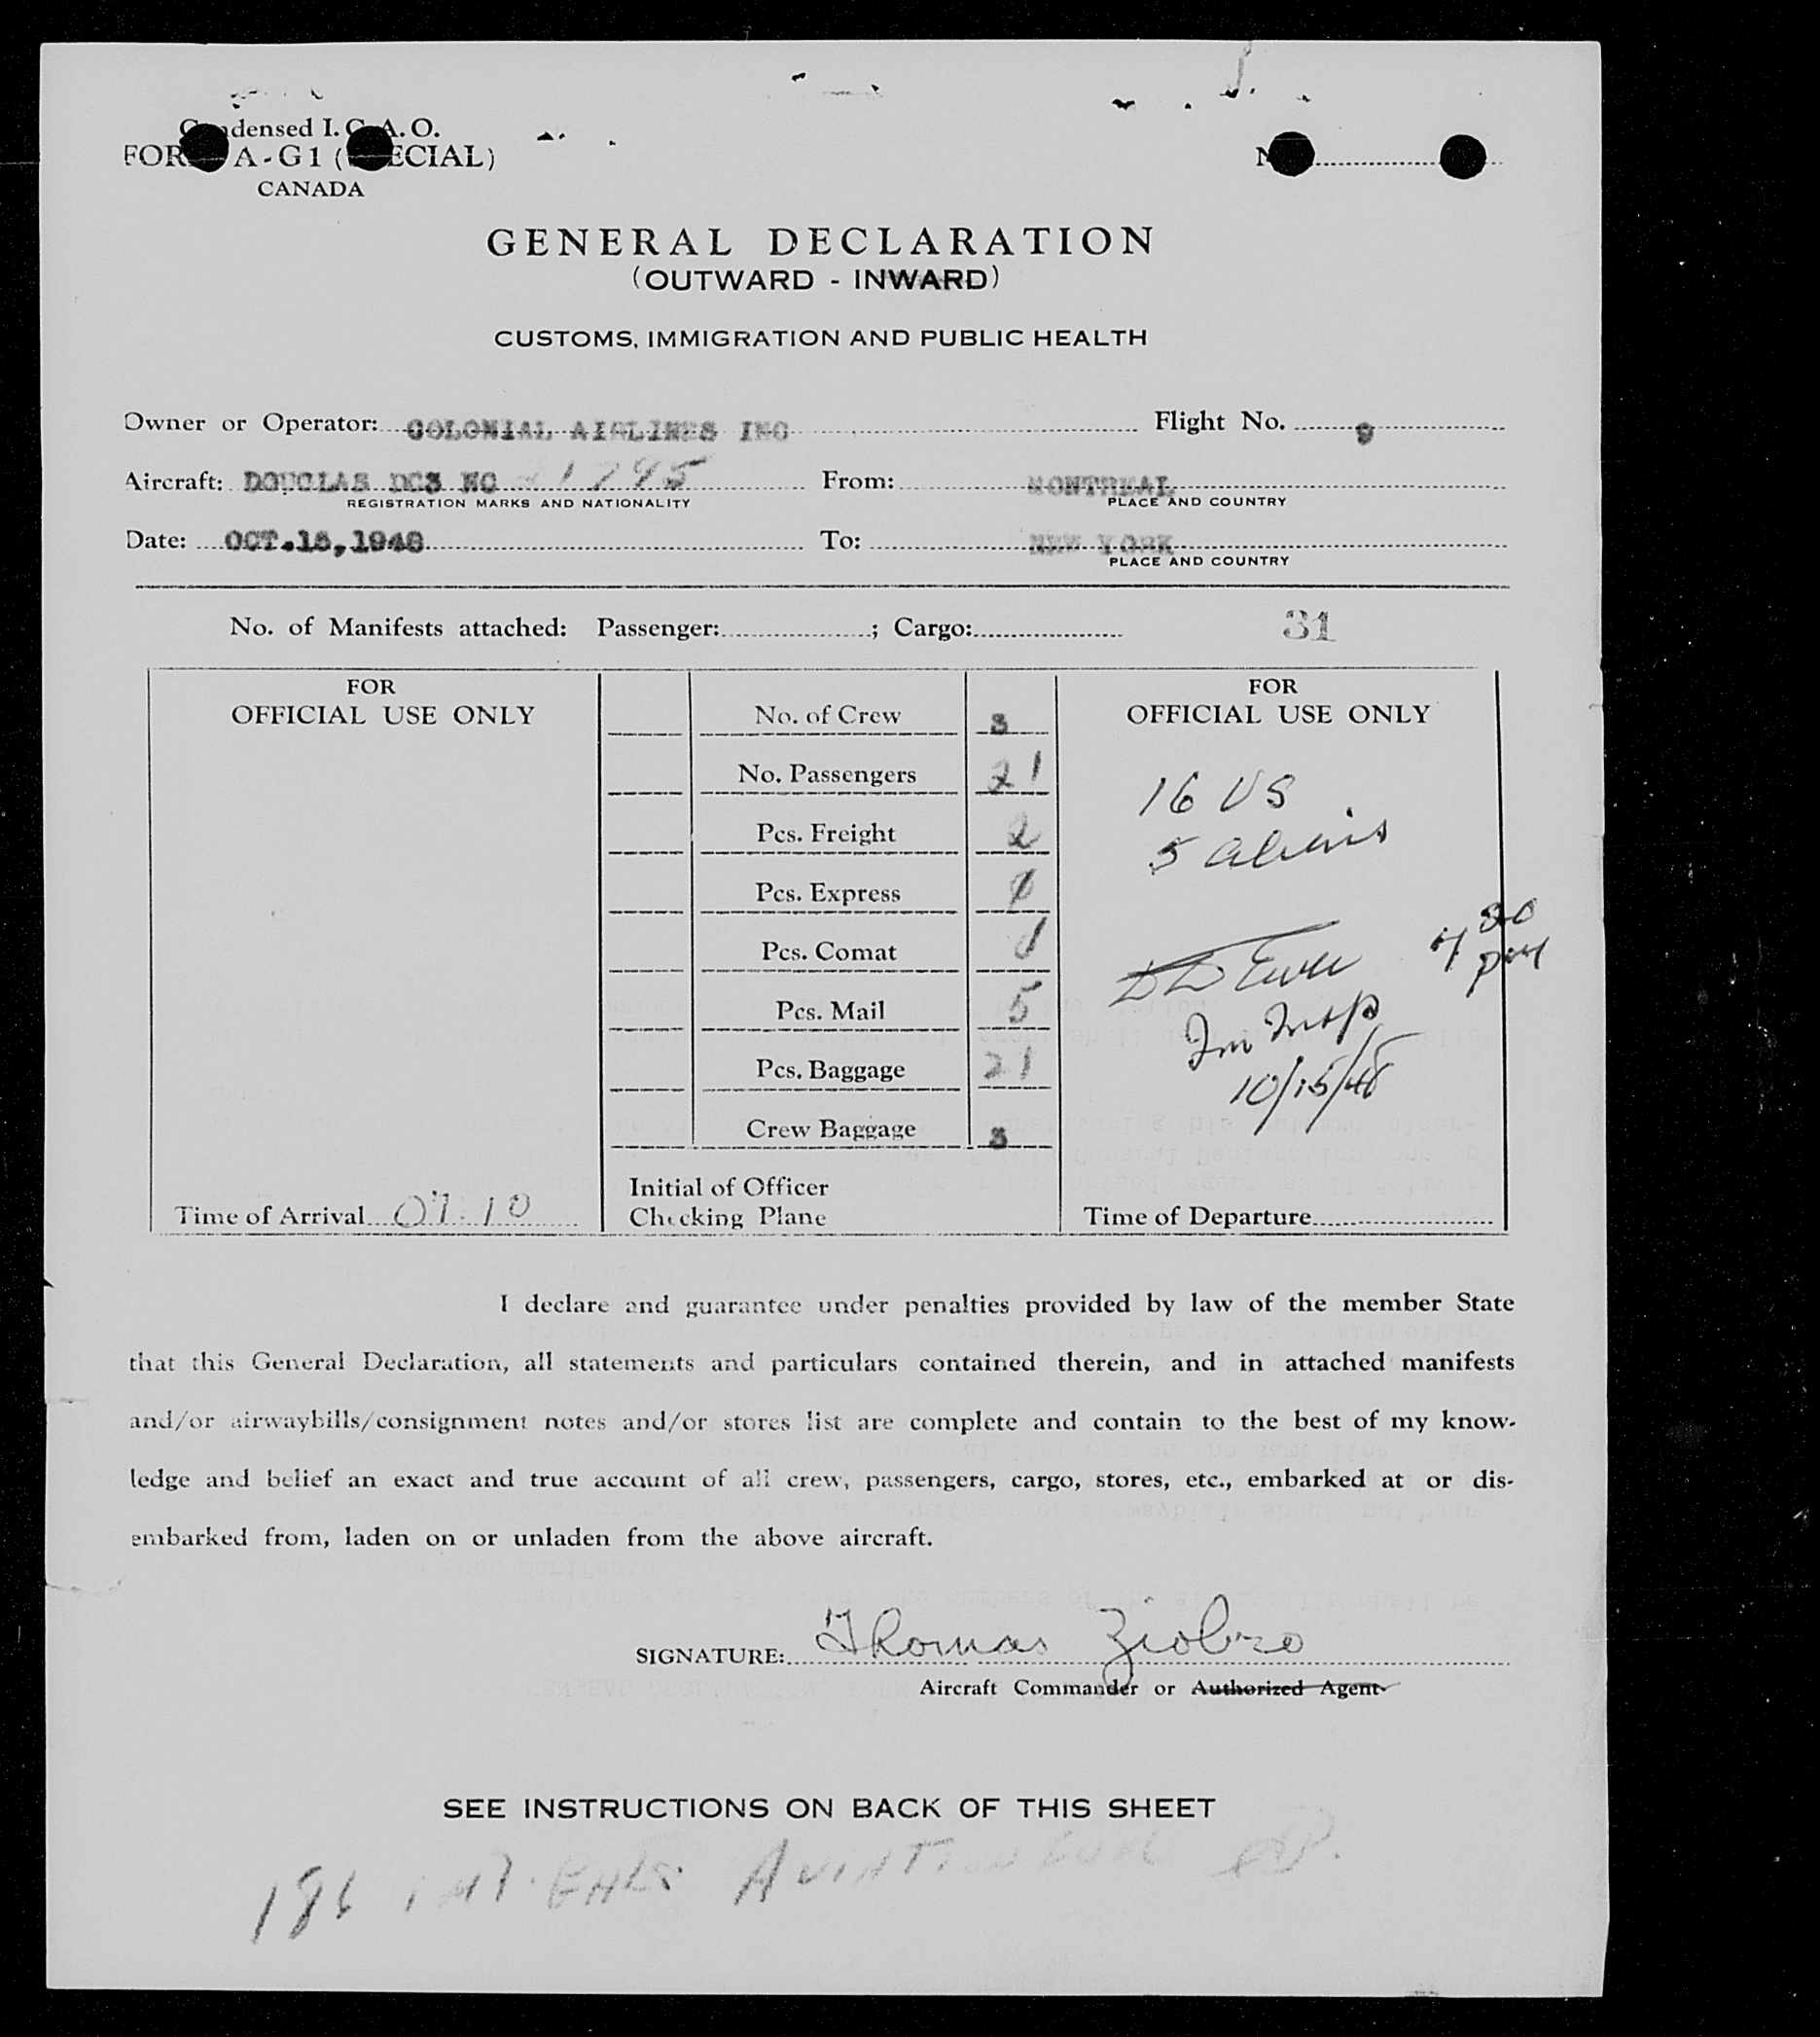 Condensed I. C. A. O.
FORM A-G1 (SPECIAL)
CANADA
No.
GENERAL DECLARATION
(OUTWARD - INWARD)
CUSTOMS, IMMIGRATION AND PUBLIC HEALTH
Owner or Operator: COLONIAL AIRLINES INC Flight No. 9
Aircraft: DOUGLAS DC3 NC 21795 From: MONTREAL
REGISTRATION MARKS AND NATIONALITY PLACE AND COUNTRY
Date: OCT.15,1948 To: NEW YORK
PLACE AND COUNTRY
No. of Manifests attached: Passenger: ; Cargo: 31
FOR
OFFICIAL USE ONLY
No. of Crew 3
No. Passengers 21
Pcs. Freight 2
Pcs. Express
Pcs. Comat 1
Pcs. Mail 5
Pcs. Baggage 21
Crew Baggage 3
Time of Arrival 07:10
Initial of Officer
Checking Plane
FOR
OFFICIAL USE ONLY
16 US
5 aliens
4 30
pm
Im Insp
10/15/48
Time of Departure
I declare and guarantee under penalties provided by law of the member State
that this General Declaration, all statements and particulars contained therein, and in attached manifests
and/or airwaybills/consignment notes and/or stores list are complete and contain to the best of my know-
ledge and belief an exact and true account of all crew, passengers, cargo, stores, etc., embarked at or dis-
embarked from, laden on or unladen from the above aircraft.
SIGNATURE: Thomas Ziobro
Aircraft Commander or Authorized Agent
SEE INSTRUCTIONS ON BACK OF THIS SHEET
186 GALS AVIATION